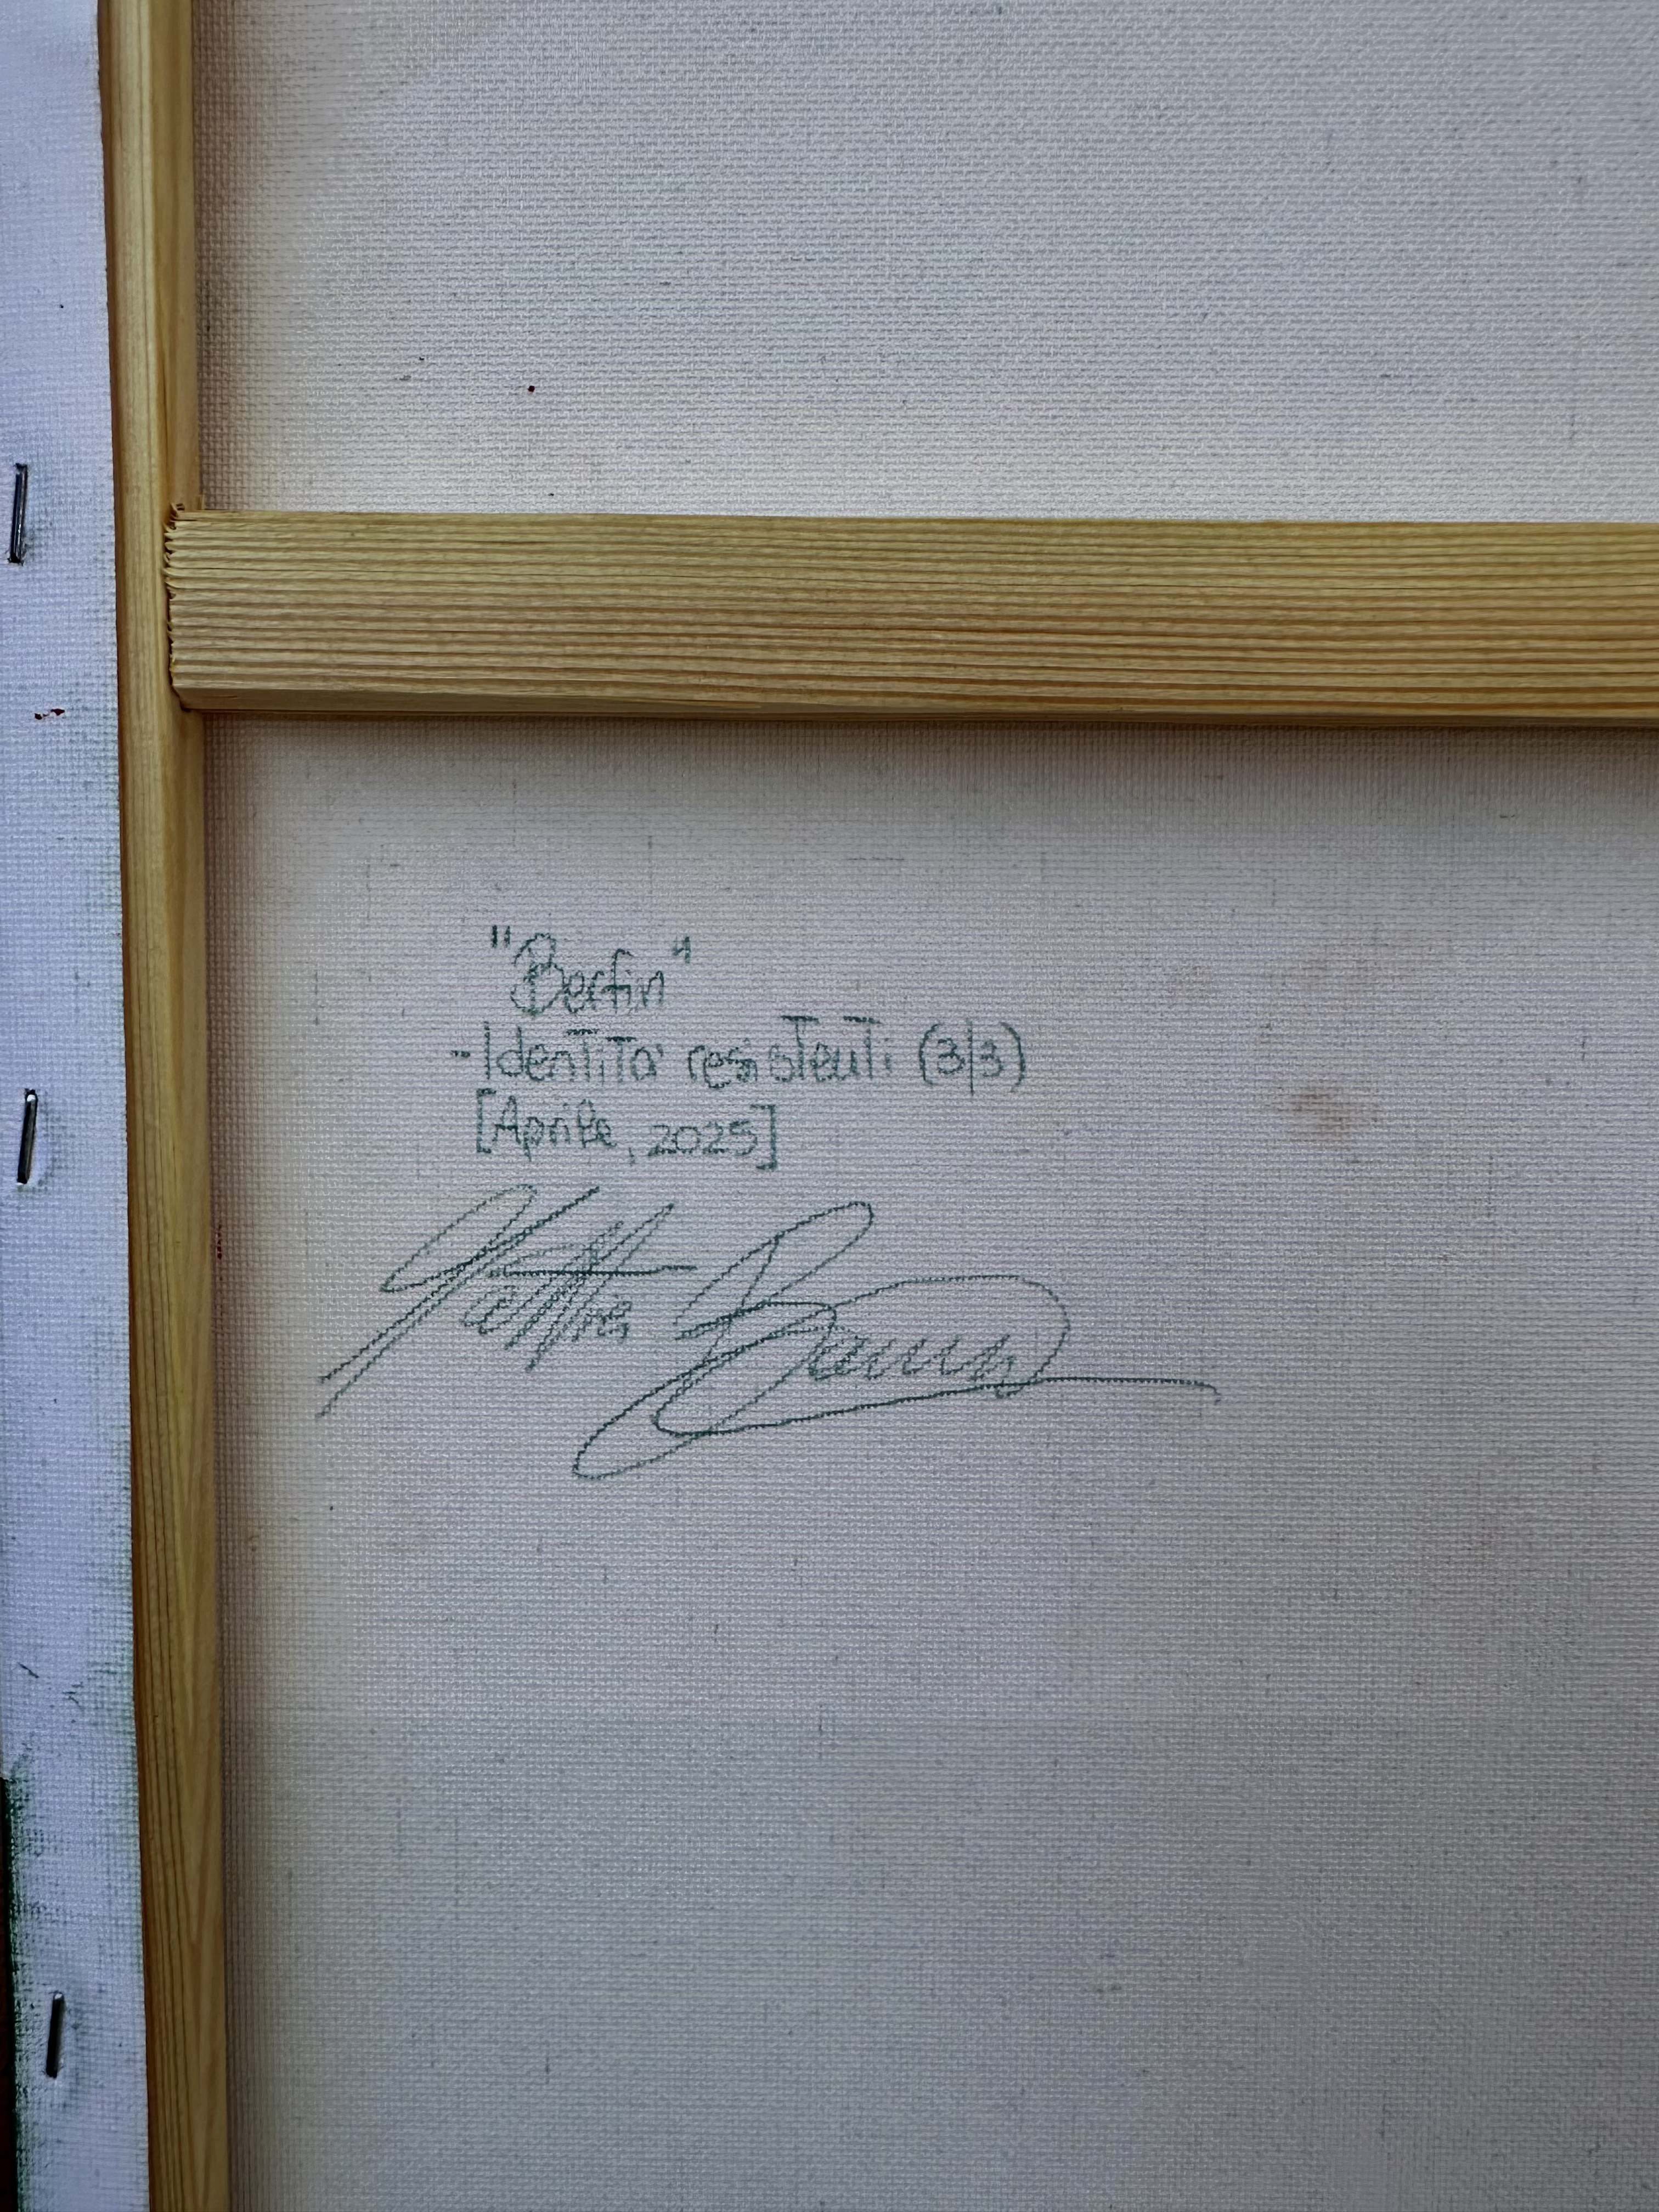 "Berfin"
-Identità resistenti (3/3)
[Aprile, 2025]